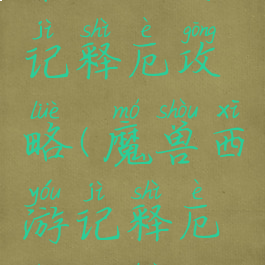 jì shì è gōng
记释厄攻
lüè mó shòu xī
略(魔兽西
yóu jì shì è
游记释厄